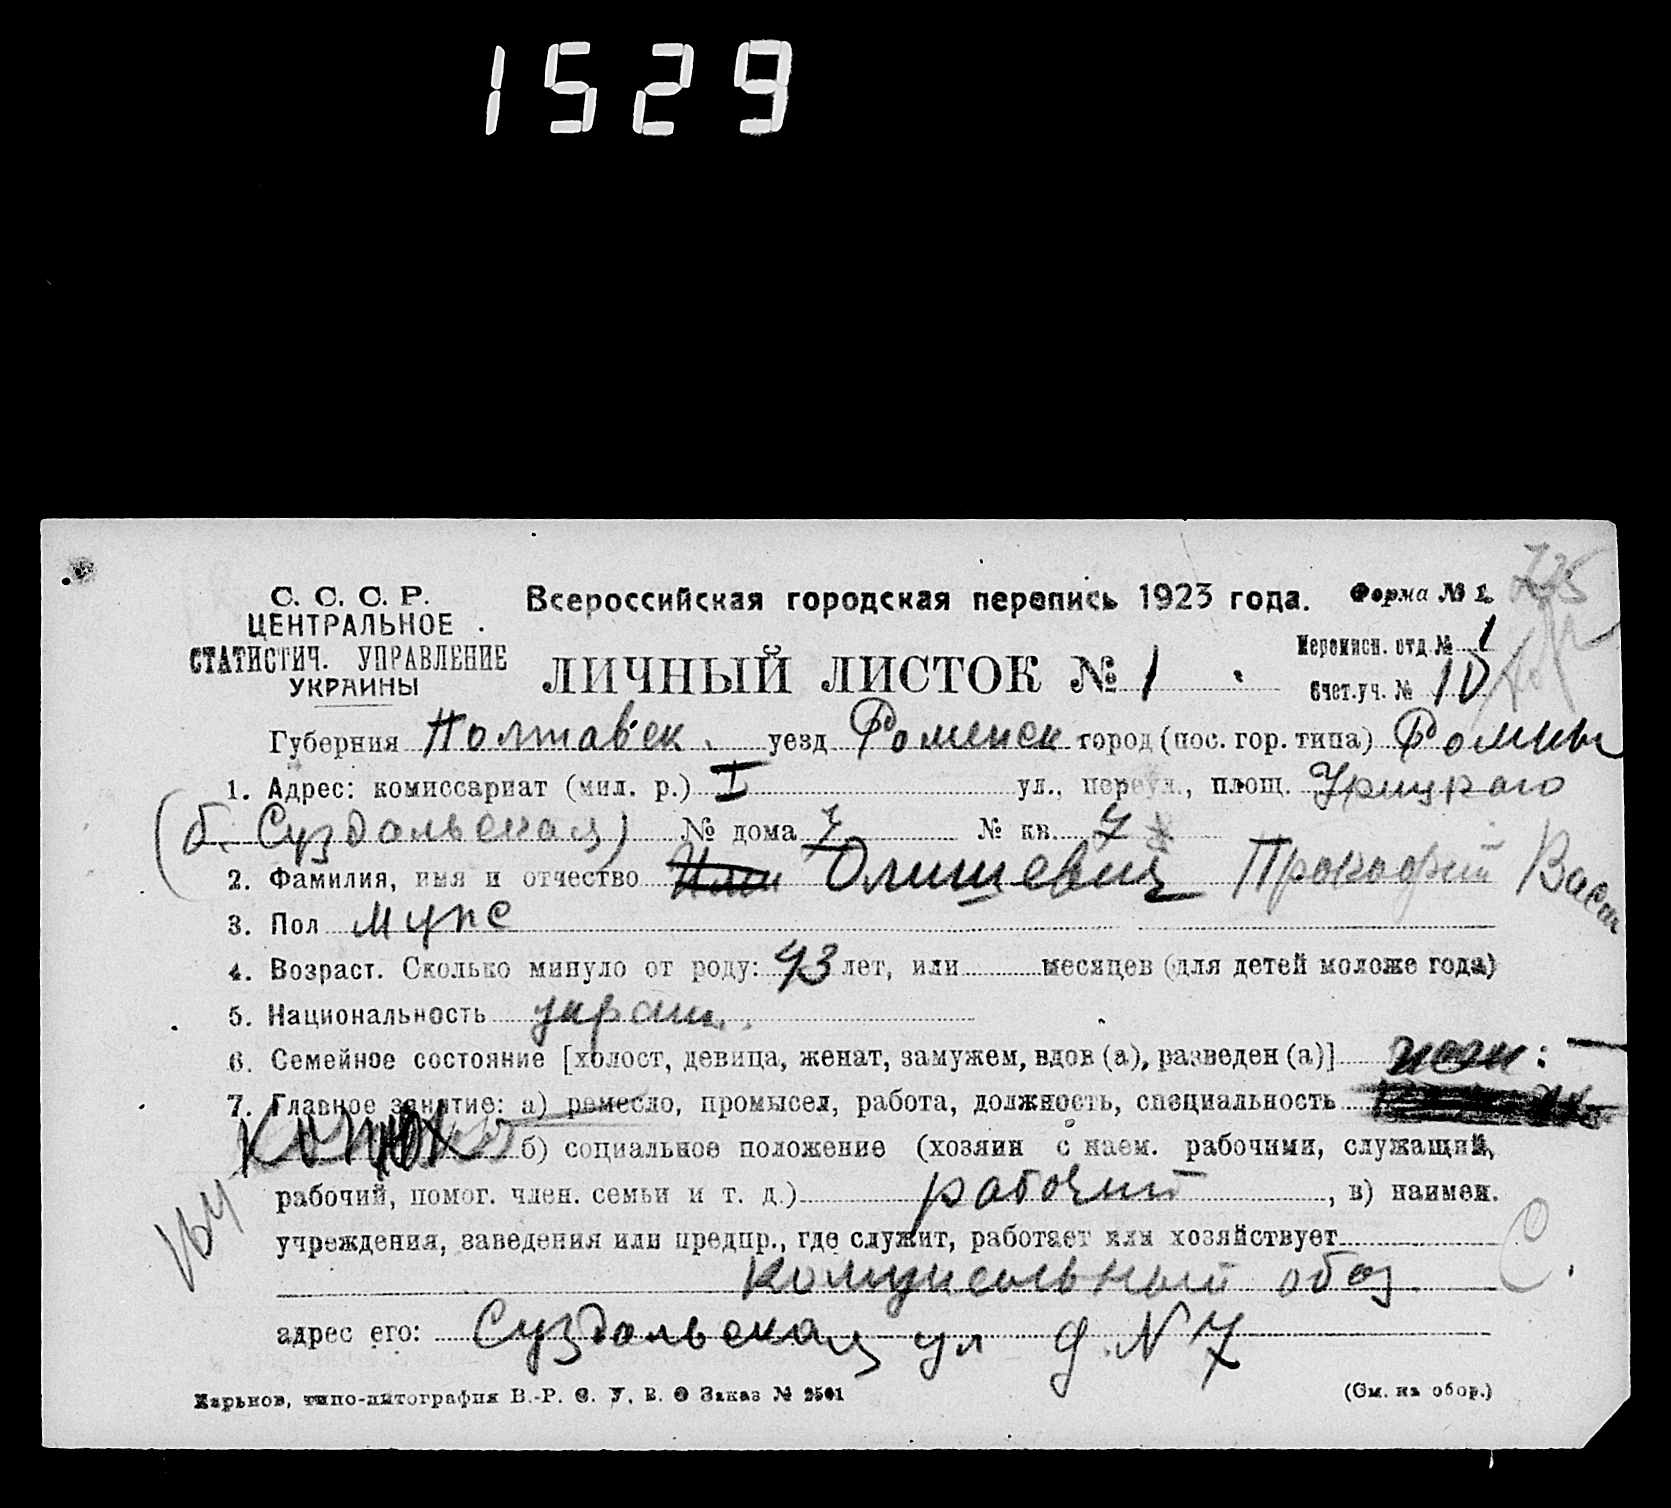 1529
С. С. С. Р.
ЦЕНТРАЛЬНОЕ
СТАТИСТИЧ. УПРАВЛЕНИЕ
УКРАИНЫ
Всероссийская городская перепись 1923 года.
Форма № 1.
ЛИЧНЫЙ ЛИСТОК № 1
Переписн. отд № 1
Счет.уч. № 10
Губерния Полтавск. уезд Роменск город (пос. гор. типа) Ромны
1. Адрес: комиссариат (мил. р.) I ул., переул., площ. Урицкого
(б. Суздальская) № дома 7 № кв. 7
2. Фамилия, имя и отчество Олишевич Прокофий Васи
3. Пол мужс
4. Возраст. Сколько минуло от роду: 43 лет, или месяцев (для детей моложе года)
5. Национальность украин.
6. Семейное состояние [холост, девица, женат, замужем, вдов (а), разведен (а)]
7. Главное занятие: а) ремесло, промысел, работа, должность, специальность
конюх б) социальное положение (хозяин с наем. рабочими, служащий,
рабочий, помог. член. семьи и т. д.) рабочий, в) наимен.
учреждения, заведения или предпр., где служит, работает или хозяйствует
комунсольный обоз.
адрес его: Суздальская ул д. N 7
Харьков, типо-литография В.-Р. Ф. У. В. О Заказ № 2501
(См. на обор.)